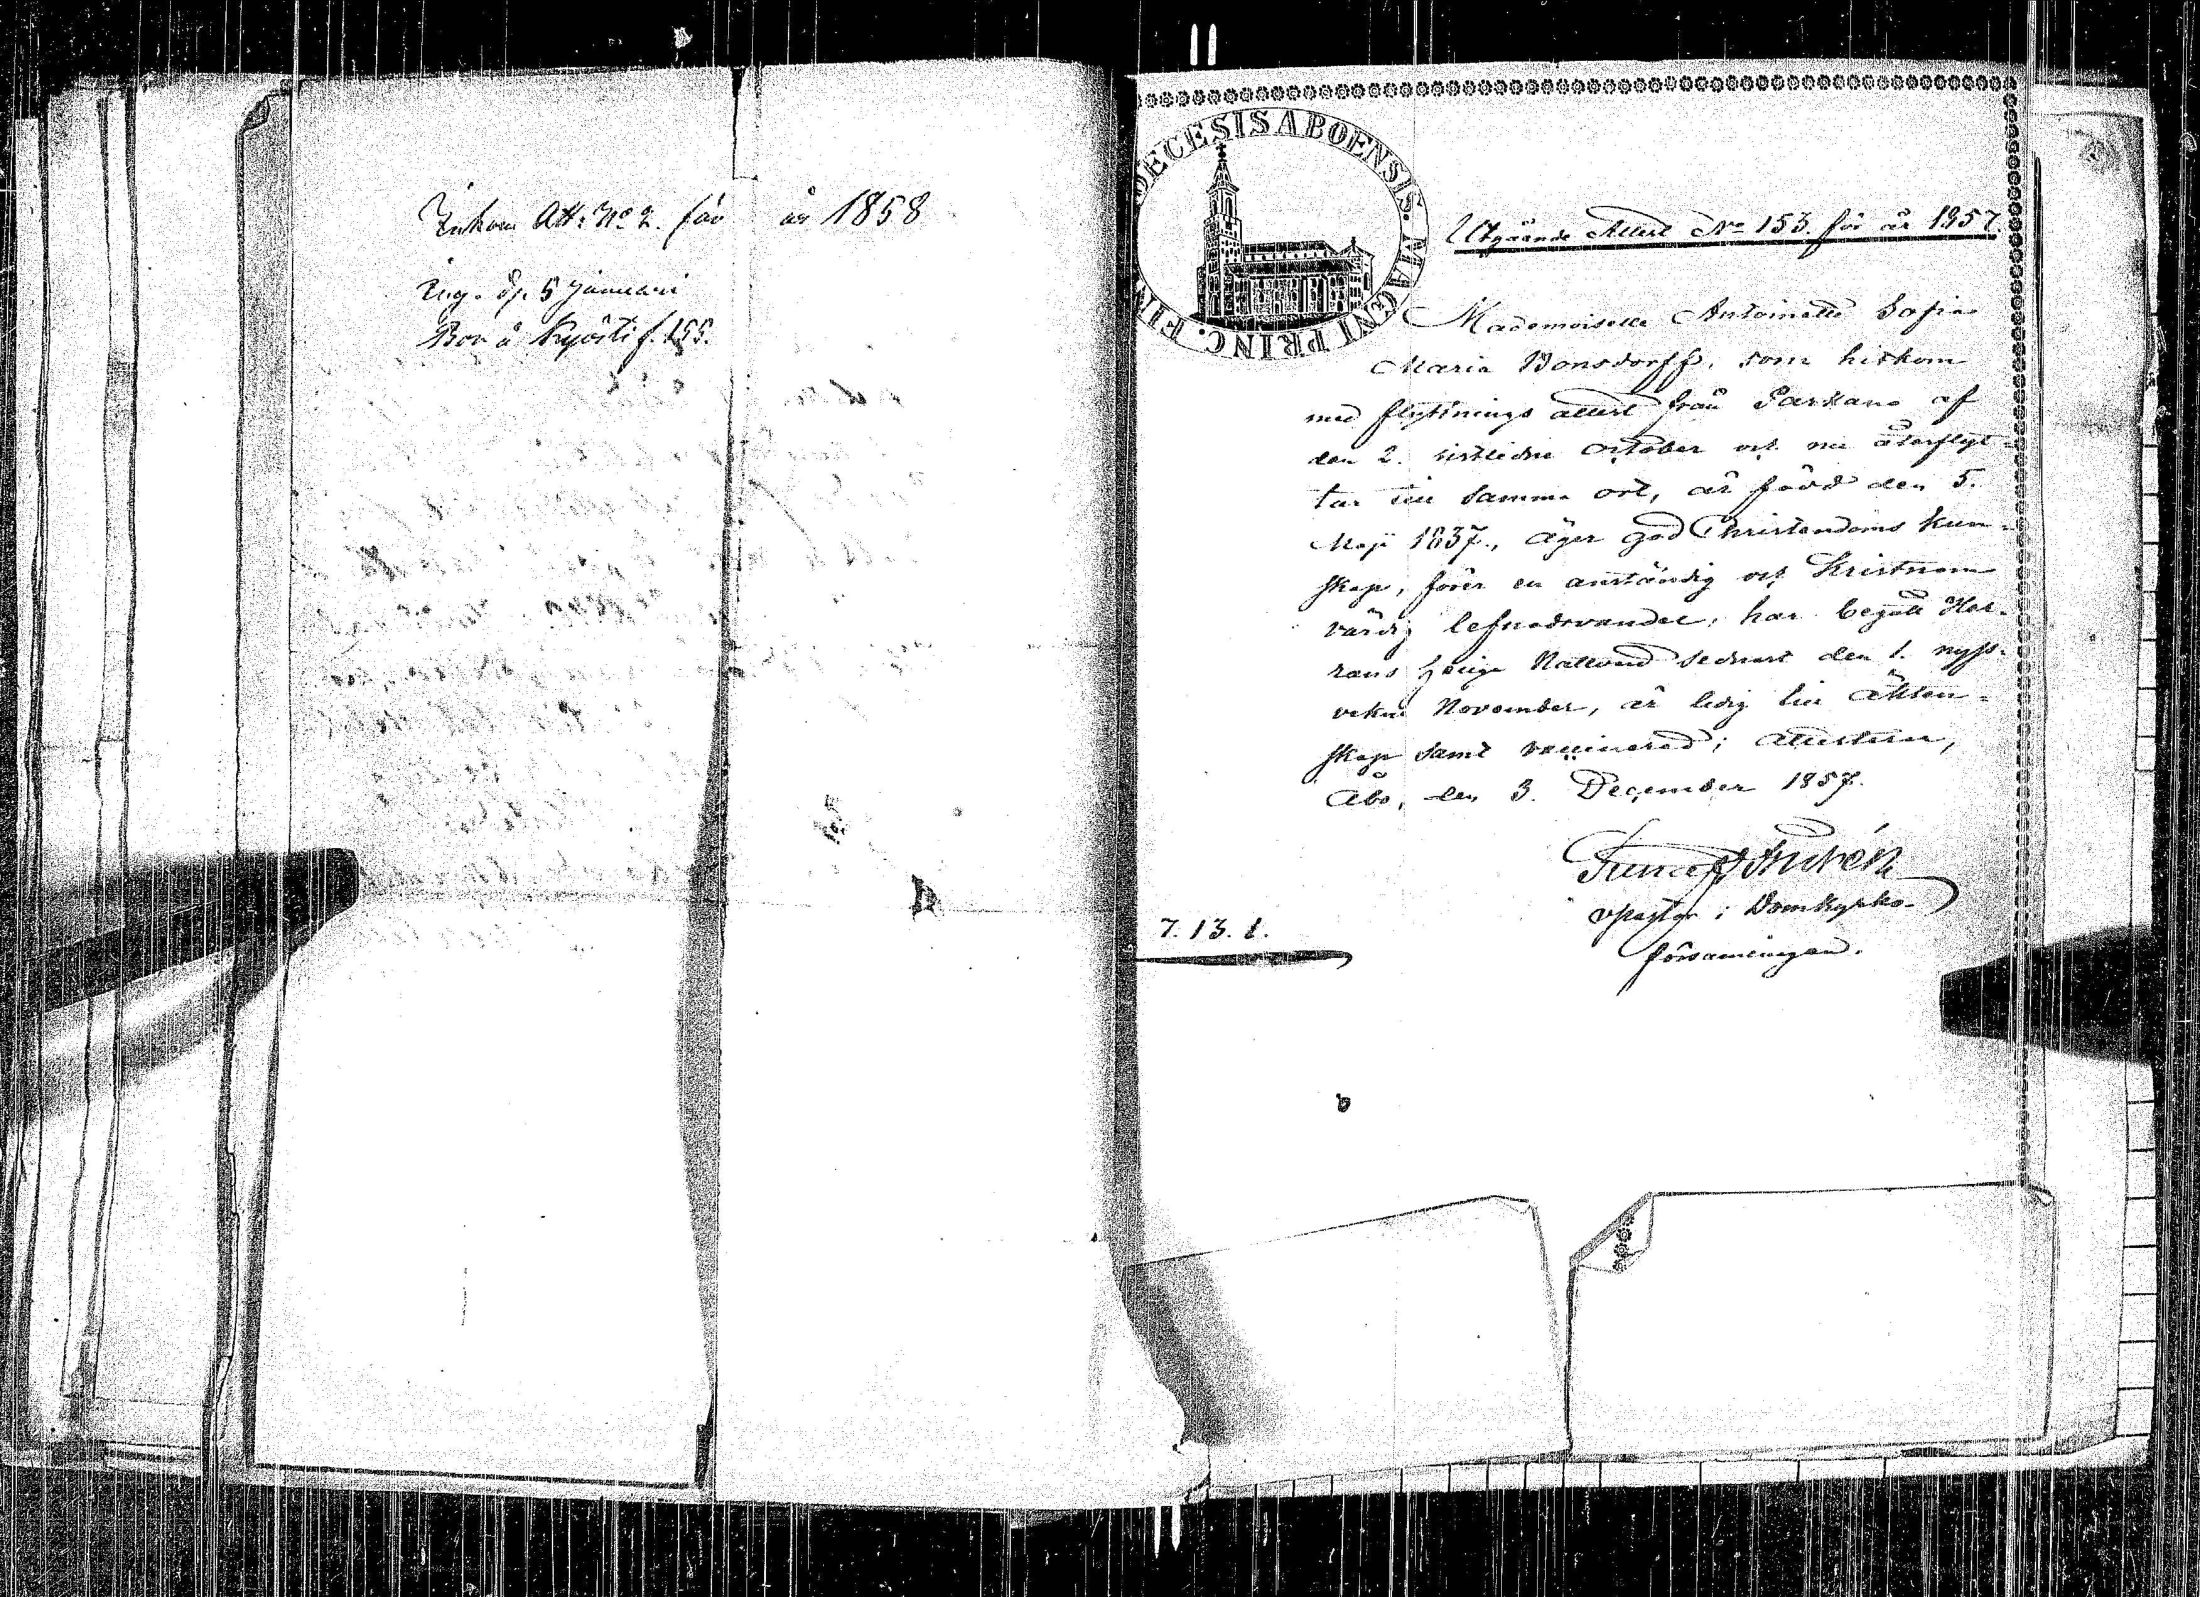 Inkom Att: No 2. för år 1858
Ing. d. 5 Januari
Bor å Kyösti f. 155.
DECESIS ABOENSIS. MAGNI PRINC. FIN
Utgående Attest No 153. för år 1857.
Mademoiselle Antoinette Sofia
Maria Bonsdorff, som hitkom
med flyttnings attest från Parkano af
den 2. sistlidne October och nu återflyt-
tar till samma ort, är född den 5.
Maji 1837., äger god Christendoms kun-
skap, förer en anständig och Kristnom
värdig lefnadsvandel, har begått Her-
rans heliga Nattvard sednast den 1. nyss-
vekne November, är ledig till äkten-
skap samt vaccinerad; attesterar,
Åbo, den 3. December 1857.
vpastor i Domkyrko-
församlingen.
7. 13. 1.